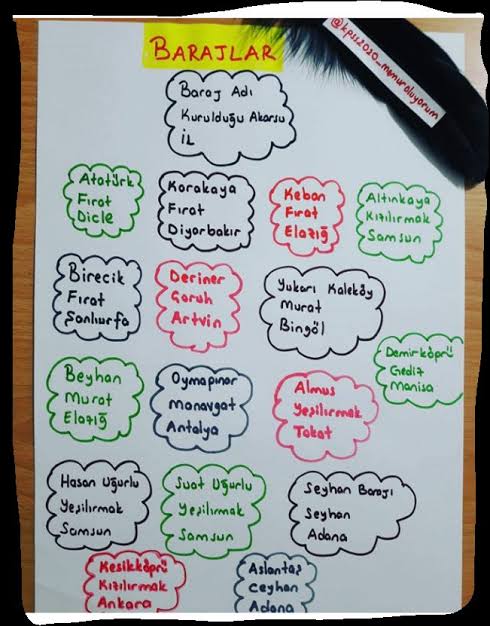 BARAJLAR
@kpss2020_memuroluyorum
Baraj Adı
Kurulduğu Akarsu
İL
Atatürk
Fırat
Dicle
Karakaya
Fırat
Diyarbakır
Keban
Fırat
Elazığ
Altınkaya
Kızılırmak
Samsun
Birecik
Fırat
Şanlıurfa
Deriner
Çoruh
Artvin
Yukarı Kaleköy
Murat
Bingöl
Demirköprü
Gediz
Manisa
Beyhan
Murat
Elazığ
Oymapınar
Manavgat
Antalya
Almus
Yeşilırmak
Tokat
Hasan Uğurlu
Yeşilırmak
Samsun
Suat Uğurlu
Yeşilırmak
Samsun
Seyhan Barajı
Seyhan
Adana
Kesikköprü
Kızılırmak
Ankara
Aslantaş
Ceyhan
Adana